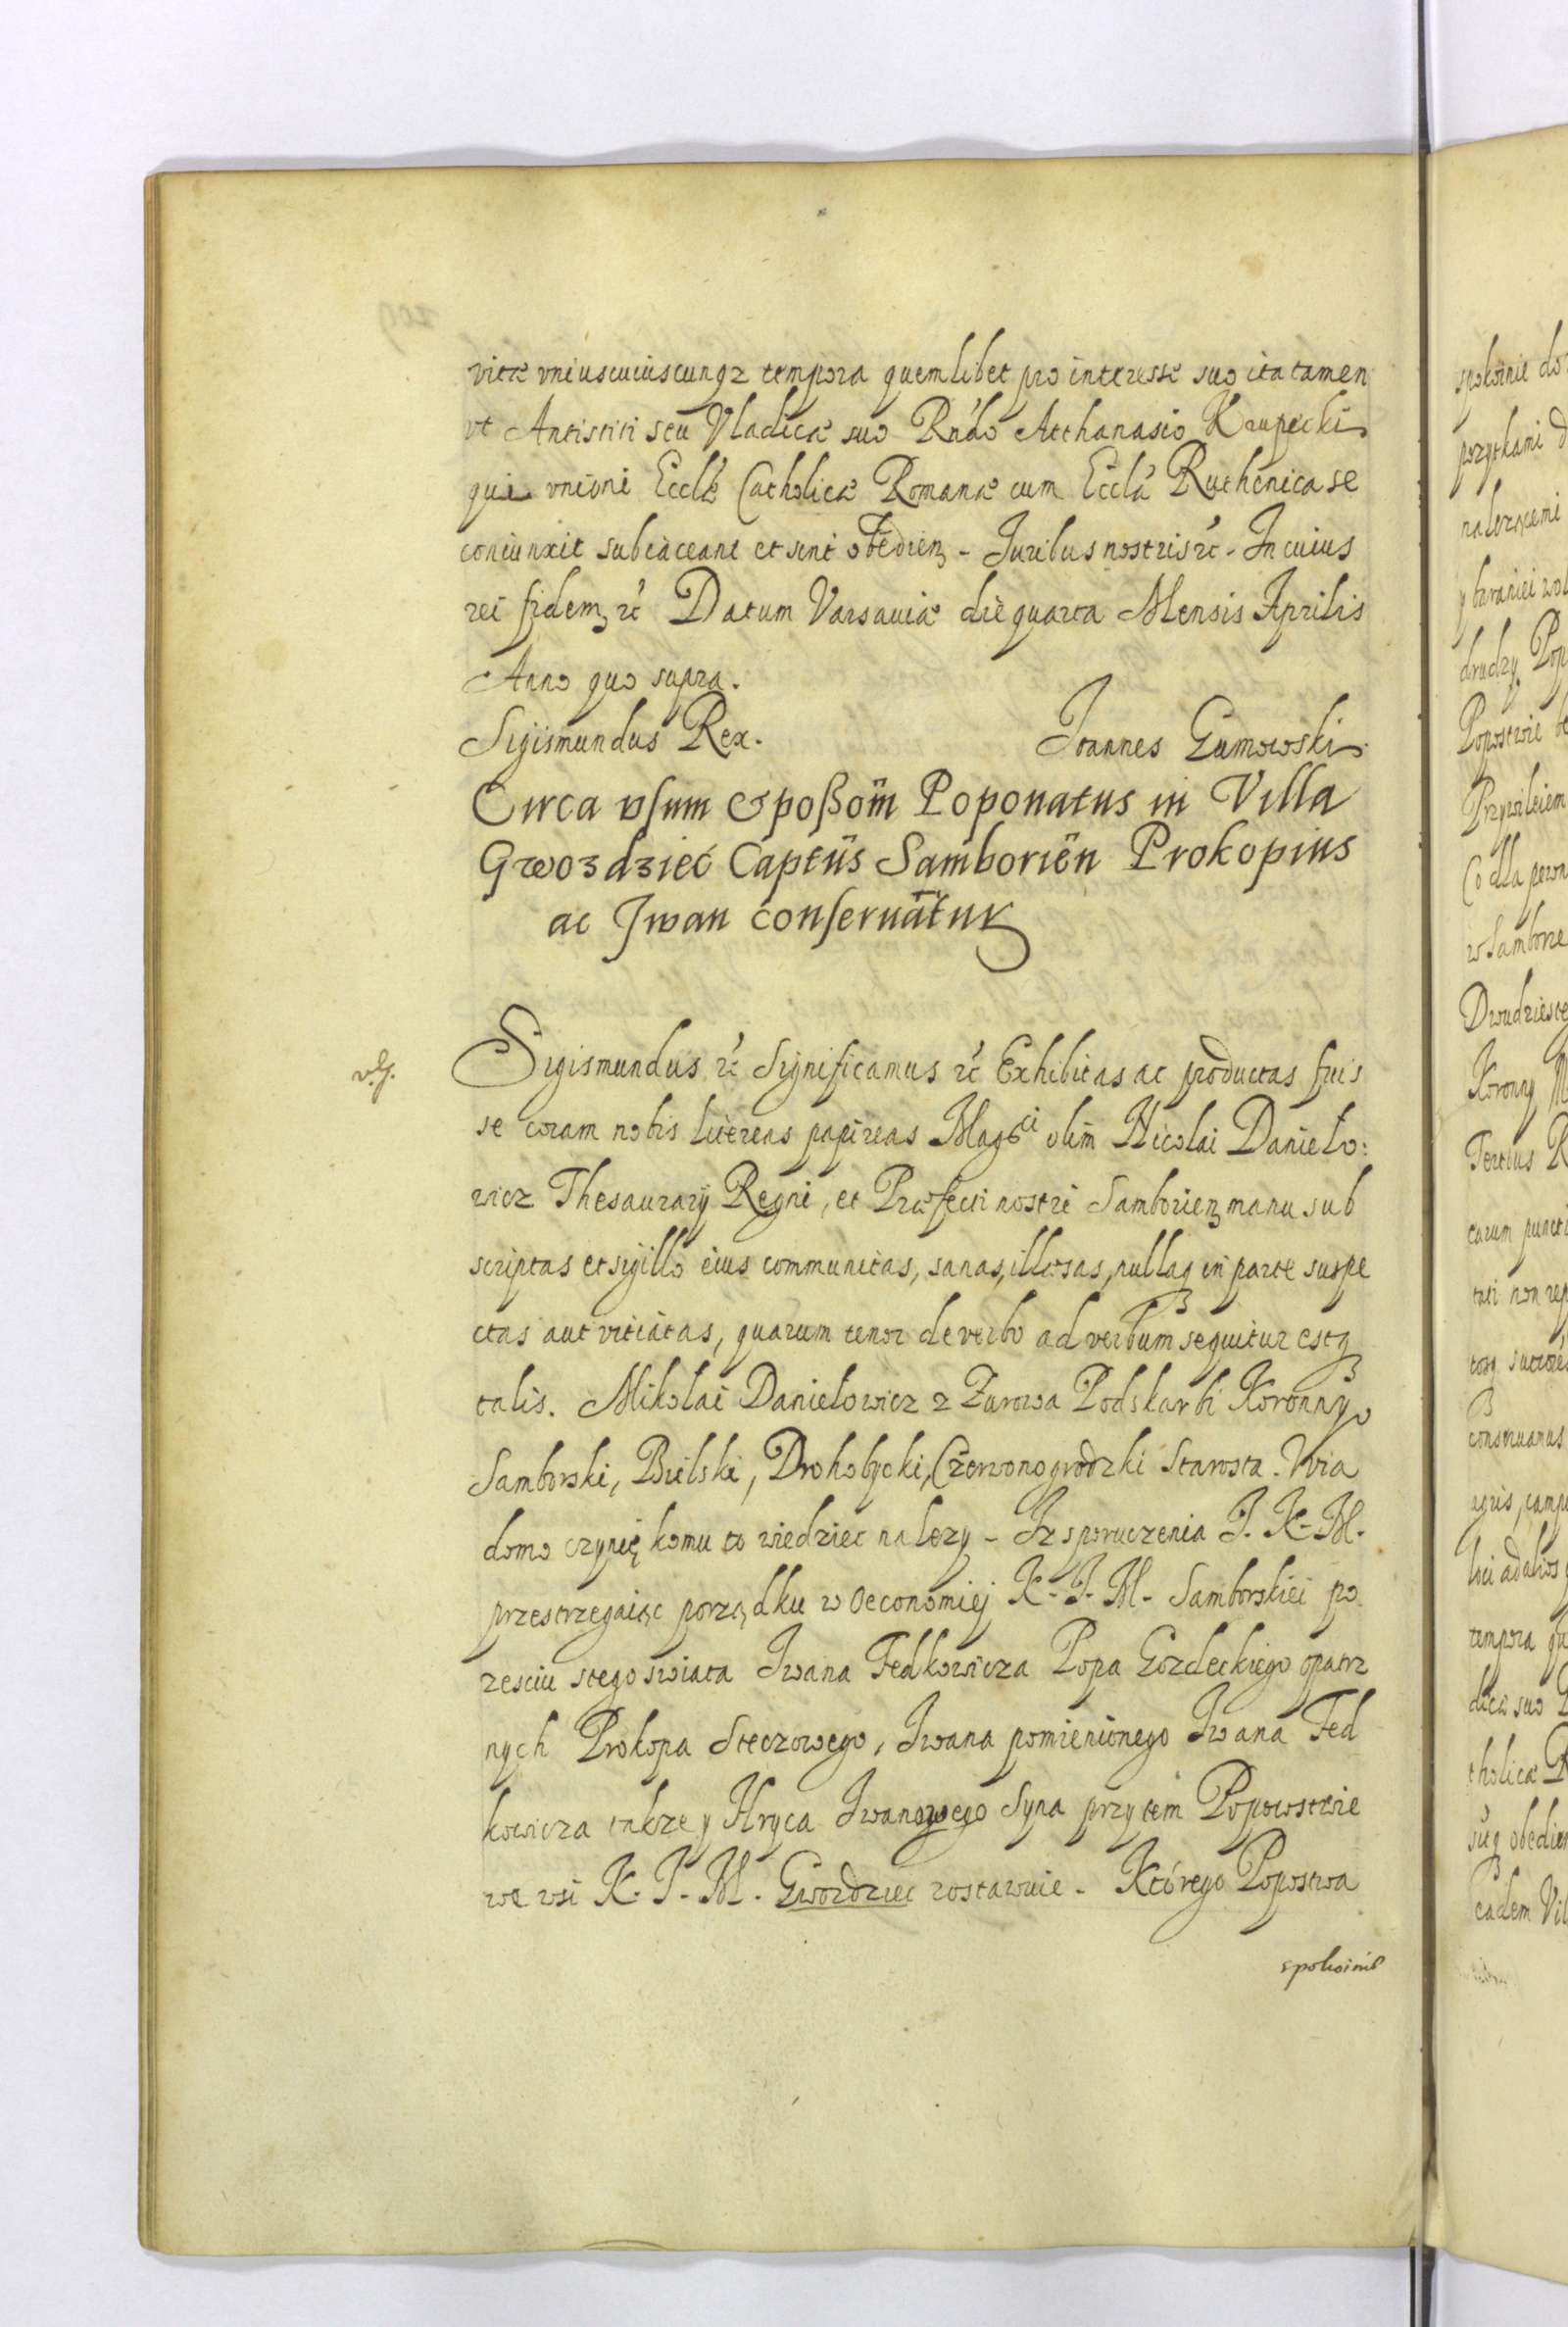 vitæ vniuscuiuscunqz tempora quemlibet pro interesse suo ita tamen
vt Antistiti seu Vladicæ suo Rndo Atthanasio Krupecki
qui vnioni Ecclæ Catholicæ Romanæ cum Eccla Ruthenica se
coniunxit subiaceant et sint obedien - Juribus nostris rc - In cuius
rei fidem rc Datum Varsauiæ die quarta Mensis Aprilis
Anno quo supra.
Sigismundus Rex. Joannes Gumowski
Circa vsum & possom Poponatus in Villa
Gwozdziec Captus Samborien Prokopius
ac Jwan conseruatur
Sigismundus rc Significamus rc Exhibitas ac productas fuis
se coram nobis litteras papireas Magci olim Nicolai Danielo:
wicz Thesaurarij Regni, et Præfecti nostri Samborien manu sub
scriptas et sigillo eius communitas, sanas, illæsas, nullaq in parte suspe
ctas aut vitiatas, quarum tenor de verbo ad verbum sequitur estq
talis. Mikolai Danielowicz z Zurowa Podskarbi Koronny
Samborski, Bielski, Drohobycki, Czerwonogrodzki Starosta. Wia
domo czynię komu to wiedziec nalezy - Iz z poruczenia J. K. M.
przestrzegaiąc porządku w Oeconomiej K. J. M. Samborskiei po
zesciu z tego swiata Iwana Fedkowicza Popa Gozdeckiego opatrz
nych Prokopa Steczowego, Iwana pomienionego Iwana Fed
kowicza takze y Hryca Iwanowego Syna przy tem Popowstwie
we wsi K. J. M. Gwozdziec zostawuie - Którego Popostwa
spokoinie